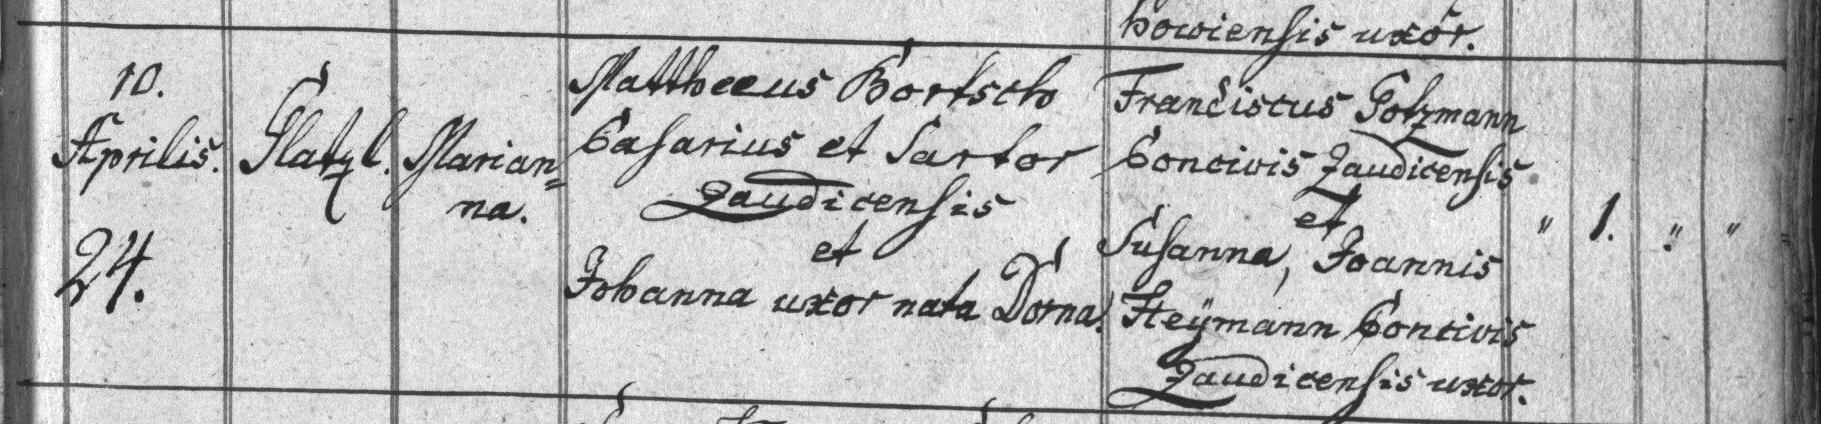 howiensis uxor.
10.
Aprilis.
24.
Platzl.
Marian=
na.
Matthaeus Bortsch
Casarius et Sartor
Zaudicensis
et
Johanna uxor nata Dorna.
Franciscus Polzmann
Concivis Zaudicensis
et
Susanna, Joannis
Heÿmann Concivis
Zaudicensis uxor.
" 1. " "